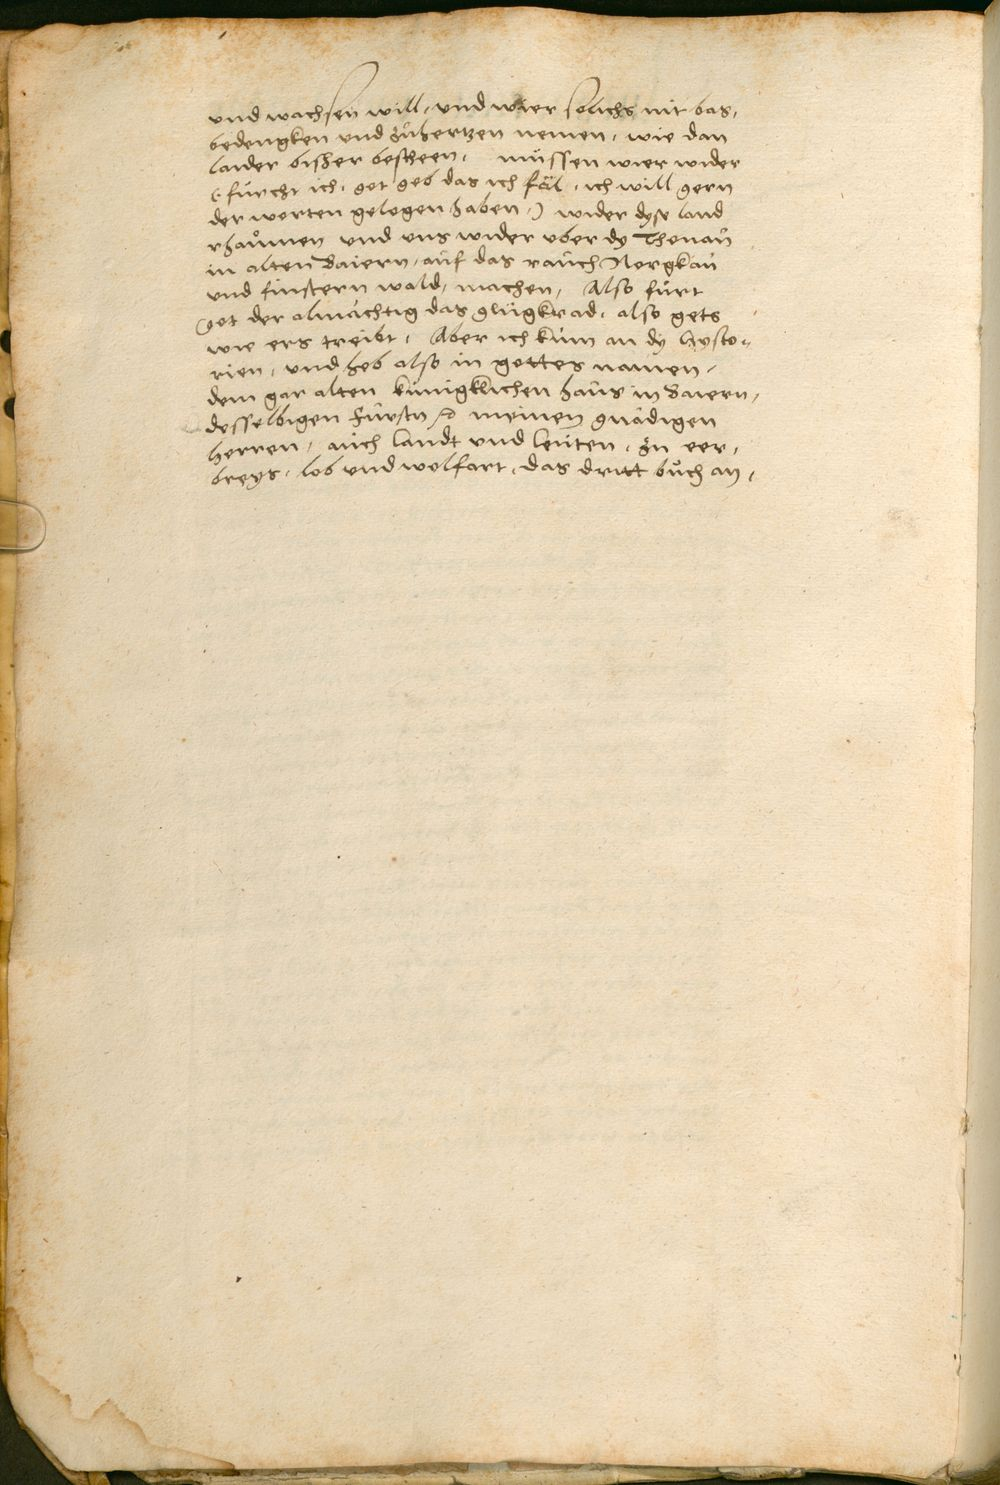 vnd wachsen will, vnd wier solichs nit bas,
bedengken vnd zůhertzen nemen, wie dan
laider bisher bescheen, müssen wier wider
(fürcht ich, got geb das ich fäl, ich will gern
der worten gelogen haben,) wider dyse land
rhaůmen vnd vns wider vber dy Thonaů
in alten Baiern, aůf das raůch Norgkaů
vnd finstern wald, machen, Also fürt
got der almächtig das glügkrad, also gets
wie ers treibt, Aber ich kům an dy hysto=
rien, vnd heb also in gottes namen,
dem gar alten künigklichen haůs in Baiern,
desselbigen fürstn meinen gnädigen
herren, aůch landt vnd leüten, zů eer,
breys, lob vnd wolfart, das dritt bůch an,